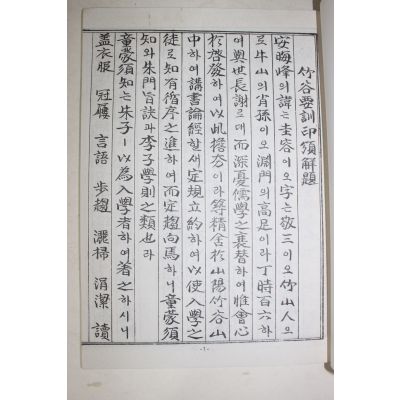 竹谷要訓印頒解題
安晦峰의諱는圭容이오字는敬三이오竹山人으
로牛山의肖孫이오淵門의高足이라丁時百六하
여與世長謝로대而深憂儒學之衰替하여惟會心
於啓發하여以 이라築精舍於山陽竹谷山
中하여講書論經할새定規立約하여以使入學之
徒로知有循序之進하여而定趨向焉하니童蒙須
知와朱門旨訣과李子學則之類也라
童蒙須知는朱子ㅣ以為入學者하여著之하시니
盖衣服 冠屨 言語 步趨 灑掃 涓潔 讀
-1-